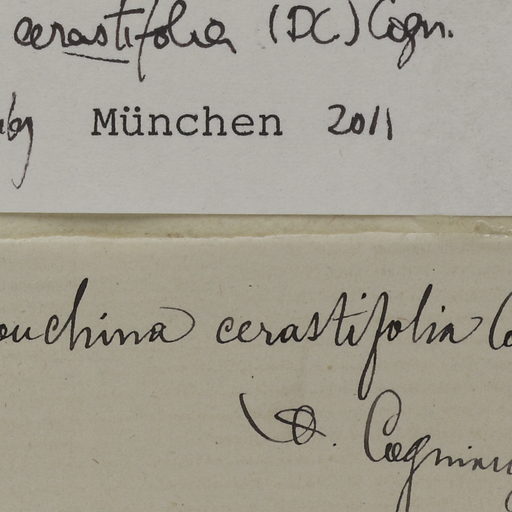 cerastifolia (DC) Cogn.
München 2011
ouchina cerastifolia Co
Cogniau